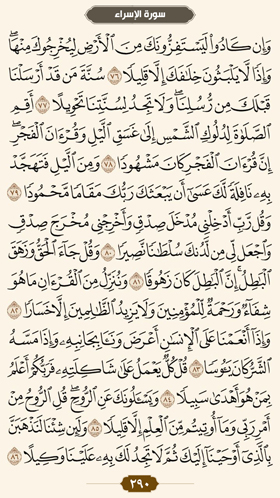 سورة الإسراء
وَإِن كَادُوا۟ لَيَسْتَفِزُّونَكَ مِنَ ٱلْأَرْضِ لِيُخْرِجُوكَ مِنْهَا ۖ
وَإِذًا لَّا يَلْبَثُونَ خِلَـٰفَكَ إِلَّا قَلِيلًا ٧٦ سُنَّةَ مَن قَدْ أَرْسَلْنَا
قَبْلَكَ مِن رُّسُلِنَا ۖ وَلَا تَجِدُ لِسُنَّتِنَا تَحْوِيلًا ٧٧ أَقِمِ
ٱلصَّلَوٰةَ لِدُلُوكِ ٱلشَّمْسِ إِلَىٰ غَسَقِ ٱلَّيْلِ وَقُرْءَانَ ٱلْفَجْرِ ۖ
إِنَّ قُرْءَانَ ٱلْفَجْرِ كَانَ مَشْهُودًا ٧٨ وَمِنَ ٱلَّيْلِ فَتَهَجَّدْ
بِهِۦ نَافِلَةً لَّكَ عَسَىٰٓ أَن يَبْعَثَكَ رَبُّكَ مَقَامًا مَّحْمُودًا ٧٩
وَقُل رَّبِّ أَدْخِلْنِى مُدْخَلَ صِدْقٍ وَأَخْرِجْنِى مُخْرَجَ صِدْقٍ
وَٱجْعَل لِّى مِن لَّدُنكَ سُلْطَـٰنًا نَّصِيرًا ٨٠ وَقُلْ جَآءَ ٱلْحَقُّ وَزَهَقَ
ٱلْبَـٰطِلُ ۚ إِنَّ ٱلْبَـٰطِلَ كَانَ زَهُوقًا ٨١ وَنُنَزِّلُ مِنَ ٱلْقُرْءَانِ مَا هُوَ
شِفَآءٌ وَرَحْمَةٌ لِّلْمُؤْمِنِينَ ۙ وَلَا يَزِيدُ ٱلظَّـٰلِمِينَ إِلَّا خَسَارًا ٨٢
وَإِذَآ أَنْعَمْنَا عَلَى ٱلْإِنسَـٰنِ أَعْرَضَ وَنَـَٔا بِجَانِبِهِۦ ۖ وَإِذَا مَسَّهُ
ٱلشَّرُّ كَانَ يَـُٔوسًا ٨٣ قُلْ كُلٌّ يَعْمَلُ عَلَىٰ شَاكِلَتِهِۦ فَرَبُّكُمْ أَعْلَمُ
بِمَنْ هُوَ أَهْدَىٰ سَبِيلًا ٨٤ وَيَسْـَٔلُونَكَ عَنِ ٱلرُّوحِ ۖ قُلِ ٱلرُّوحُ مِنْ
أَمْرِ رَبِّى وَمَآ أُوتِيتُم مِّنَ ٱلْعِلْمِ إِلَّا قَلِيلًا ٨٥ وَلَئِن شِئْنَا لَنَذْهَبَنَّ
بِٱلَّذِىٓ أَوْحَيْنَآ إِلَيْكَ ثُمَّ لَا تَجِدُ لَكَ بِهِۦ عَلَيْنَا وَكِيلًا ٨٦
٢٩٠